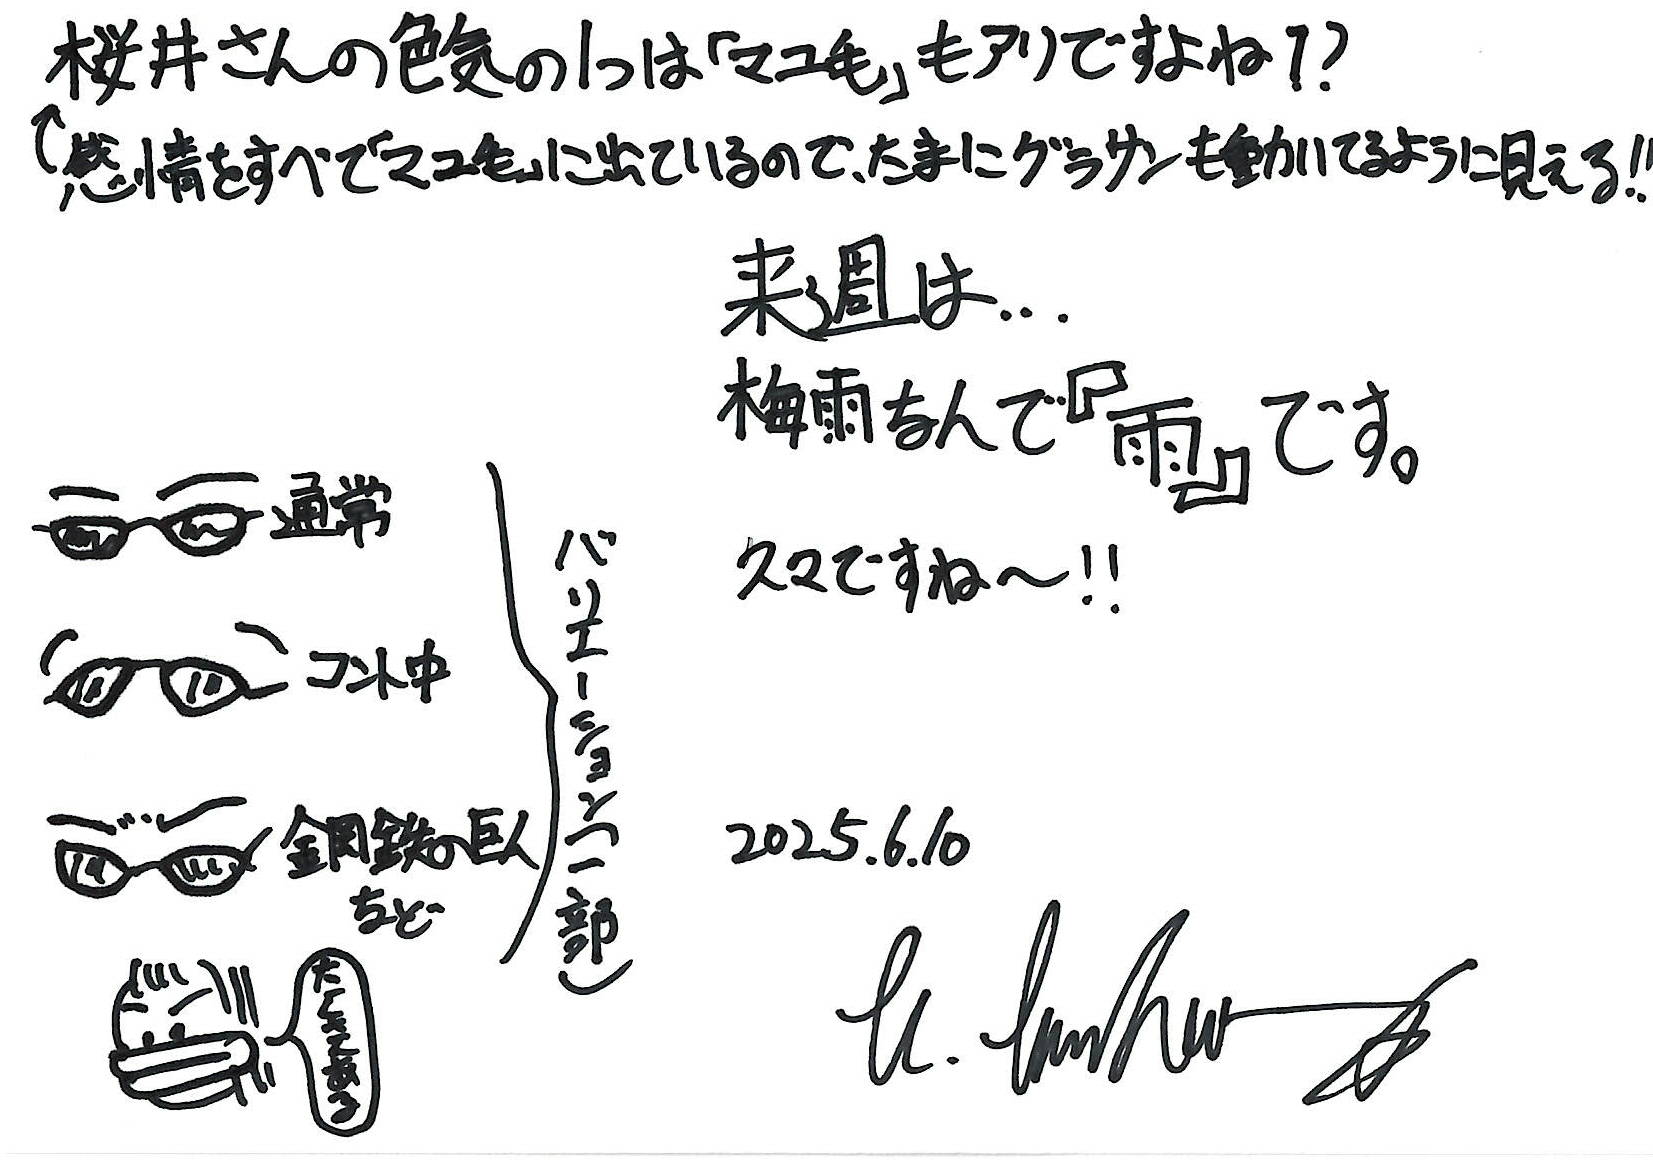 桜井さんの色気の1つは「マユ毛」もアリですよね!?
感情をすべて「マユ毛」に出ているので、たまにグラサンも動いてるように見える!!
来週は...
梅雨なんで『雨』です。
久々ですね〜!!
通常
コント中
鋼鉄の巨人
など
バリエーション(一部)
たくさんある
2025.6.10